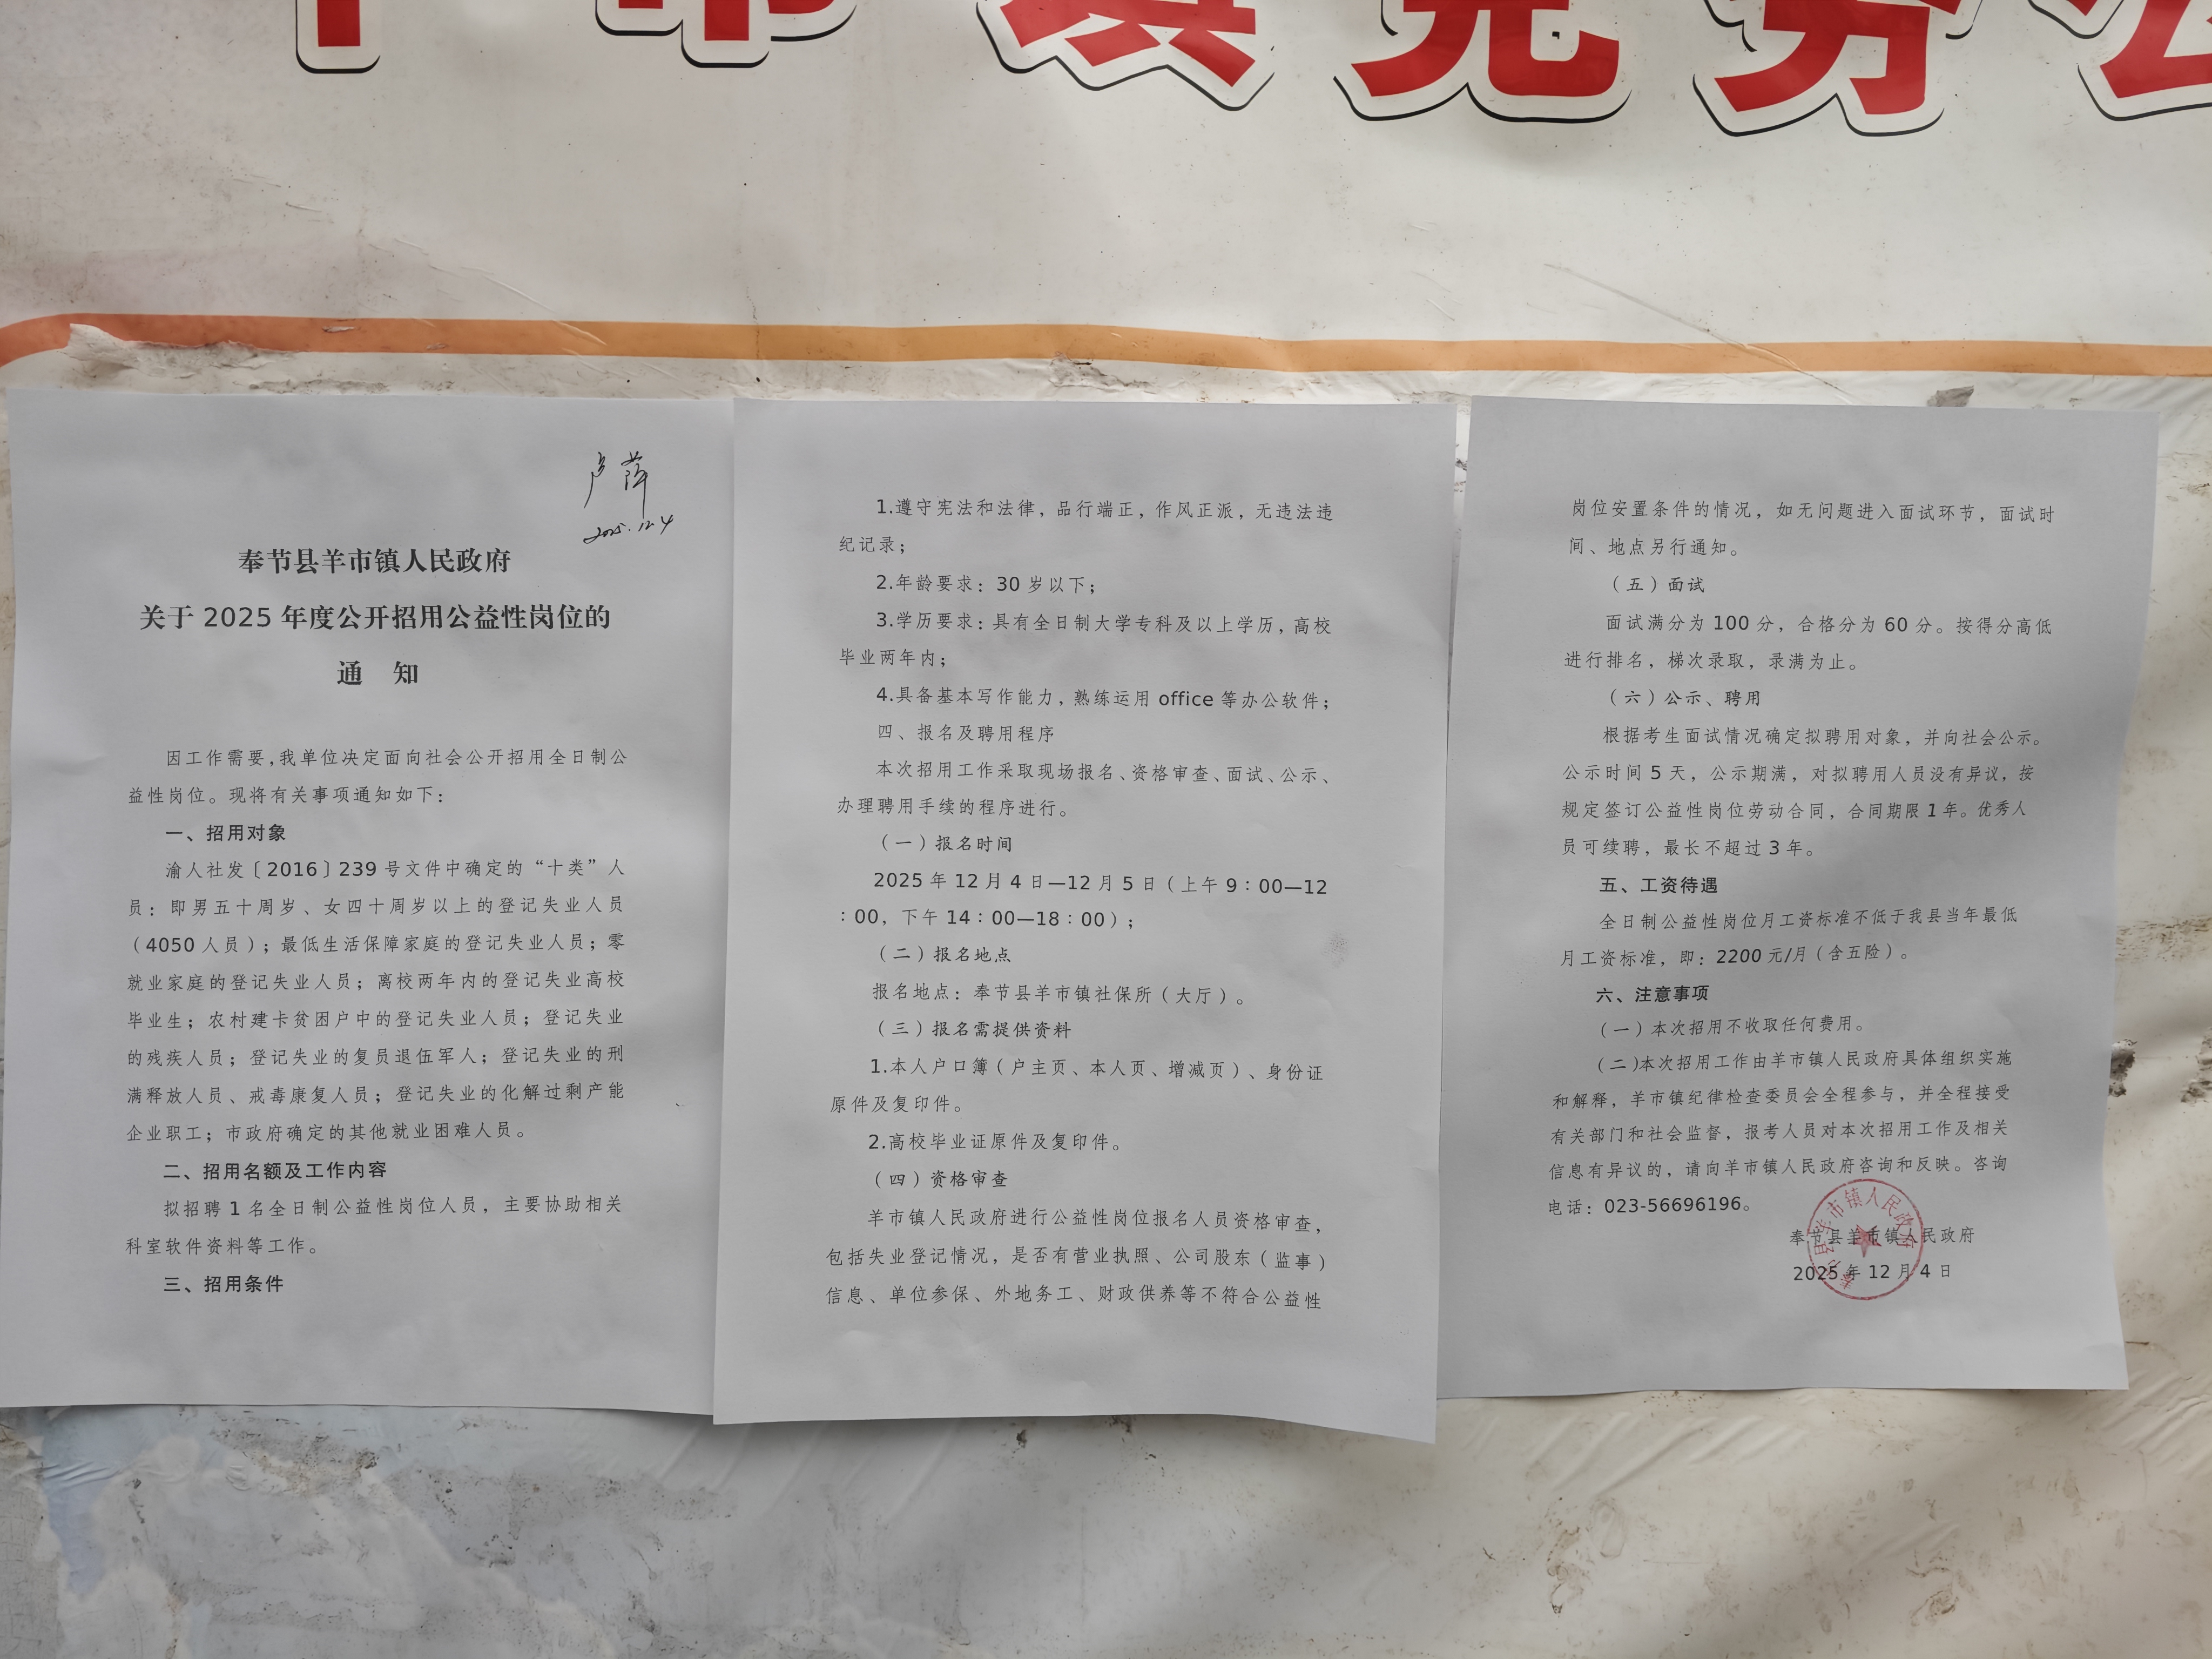 镇党务公
卢萍
2025.12.4
奉节县羊市镇人民政府
关于 2025 年度公开招用公益性岗位的
通 知
因工作需要,我单位决定面向社会公开招用全日制公
益性岗位。现将有关事项通知如下：
一、招用对象
渝人社发〔2016〕239 号文件中确定的“十类”人
员：即男五十周岁、女四十周岁以上的登记失业人员
（4050 人员）；最低生活保障家庭的登记失业人员；零
就业家庭的登记失业人员；离校两年内的登记失业高校
毕业生；农村建卡贫困户中的登记失业人员；登记失业
的残疾人员；登记失业的复员退伍军人；登记失业的刑
满释放人员、戒毒康复人员；登记失业的化解过剩产能
企业职工；市政府确定的其他就业困难人员。
二、招用名额及工作内容
拟招聘 1 名全日制公益性岗位人员，主要协助相关
科室软件资料等工作。
三、招用条件
1.遵守宪法和法律，品行端正，作风正派，无违法违
纪记录；
2.年龄要求：30 岁以下；
3.学历要求：具有全日制大学专科及以上学历，高校
毕业两年内；
4.具备基本写作能力，熟练运用 office 等办公软件；
四、报名及聘用程序
本次招用工作采取现场报名、资格审查、面试、公示、
办理聘用手续的程序进行。
（一）报名时间
2025 年 12 月 4 日—12 月 5 日（上午 9：00—12
：00，下午 14：00—18：00）；
（二）报名地点
报名地点：奉节县羊市镇社保所（大厅）。
（三）报名需提供资料
1.本人户口簿（户主页、本人页、增减页）、身份证
原件及复印件。
2.高校毕业证原件及复印件。
（四）资格审查
羊市镇人民政府进行公益性岗位报名人员资格审查，
包括失业登记情况，是否有营业执照、公司股东（监事）
信息、单位参保、外地务工、财政供养等不符合公益性
岗位安置条件的情况，如无问题进入面试环节，面试时
间、地点另行通知。
（五）面试
面试满分为 100 分，合格分为 60 分。按得分高低
进行排名，梯次录取，录满为止。
（六）公示、聘用
根据考生面试情况确定拟聘用对象，并向社会公示。
公示时间 5 天，公示期满，对拟聘用人员没有异议，按
规定签订公益性岗位劳动合同，合同期限 1 年。优秀人
员可续聘，最长不超过 3 年。
五、工资待遇
全日制公益性岗位月工资标准不低于我县当年最低
月工资标准，即：2200 元/月（含五险）。
六、注意事项
（一）本次招用不收取任何费用。
（二）本次招用工作由羊市镇人民政府具体组织实施
和解释，羊市镇纪律检查委员会全程参与，并全程接受
有关部门和社会监督，报考人员对本次招用工作及相关
信息有异议的，请向羊市镇人民政府咨询和反映。咨询
电话：023-56696196。
奉节县羊市镇人民政府
奉节县羊市镇人民政府
2025 年 12 月 4 日